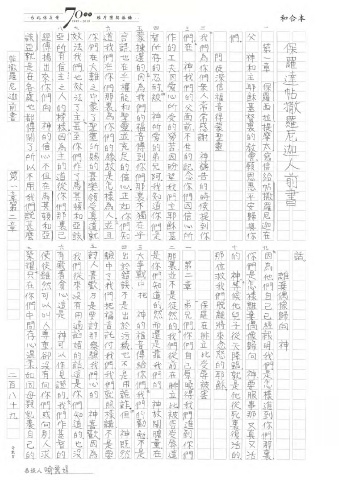 和合本
7000
保羅達帖撒羅尼迦人前書
第一章 保羅西拉提摩太寫信給帖撒羅尼迦在
父 神和主耶穌基督裏的教會願恩惠平安歸與你
們
門徒深信福音得蒙喜悅
我們為你們眾人常常感謝 神禱告的時候提到你
們在 神我們的父面前不住的記念你們因信心所
作的工夫因愛心所受的勞苦因盼望我們主耶穌基
督所存的忍耐被 神所愛的弟兄阿我知道你們是
蒙揀選的因為我們的福音傳到你們那裏不獨在乎
言語也在乎權能和聖靈並充足的信心正如你們知
道我們在你們那裏為你們的緣故是怎樣為人並且
你們在大難之中蒙了聖靈所賜的喜樂領受真道就
效法我們也效法了主甚至你們作了馬其頓和亞該
亞所有信主之人的榜樣因為主的道從你們那裏已
經傳揚出來你們向 神的信心不但在馬其頓和亞
該亞就是在各處也都傳開了所以不用我們說甚麼
話
離棄偶像歸向 神
因為他們自己已經報明我們是怎樣進到你們那裏
你們是怎樣離棄偶像歸向 神要服事那又真又活
的 神等候他兒子從天降臨就是他從死裏復活的
那位救我們脫離將來忿怒的耶穌
第二章 保羅在腓立比受辱被害
弟兄們你們自己原曉得我們進到你們
那裏並不是徒然的我們從前在腓立比被害受辱這
是你們知道的然而還是靠我們的 神放開膽量在
大爭戰中把 神的福音傳給你們我們的勸勉不是
出於錯誤不是出於污穢也不是用詭詐但 神既然
驗中了我們把福音託付我們我們就照樣講不是要
討人喜歡乃是要討那察驗我們心的 神喜歡因為
我們從來沒有用過諂媚的話這是你們知道的也沒
有藏著貪心這是 神可以作見證的我們作基督的
使徒雖然可以叫人尊重卻沒有向你們或向別人求
榮耀只在你們中間存心溫柔如同母親乳養自己的
帖撒羅尼迦前書 第一章至二章
二百八十九